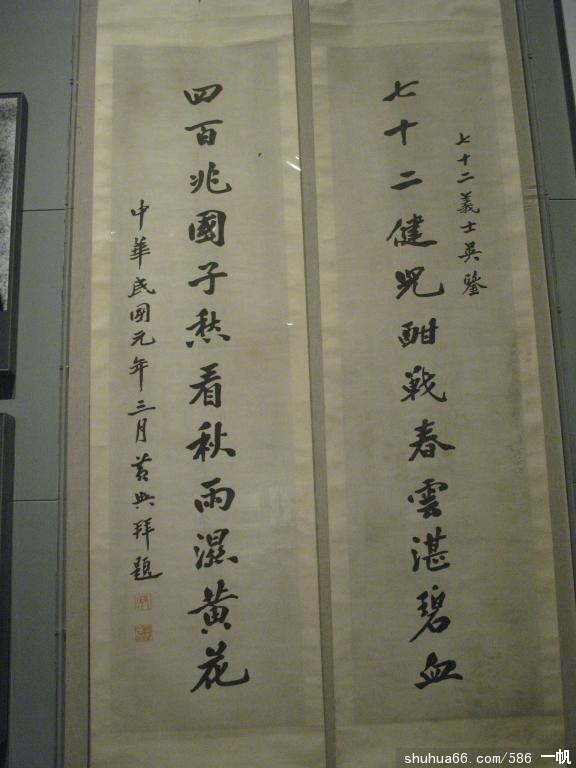 七十二義士英鑒
七十二健兒酣戰春雲湛碧血
四百兆國子愁看秋雨濕黃花
中華民國元年三月黃興拜題
shuhua66.com/586 一帆